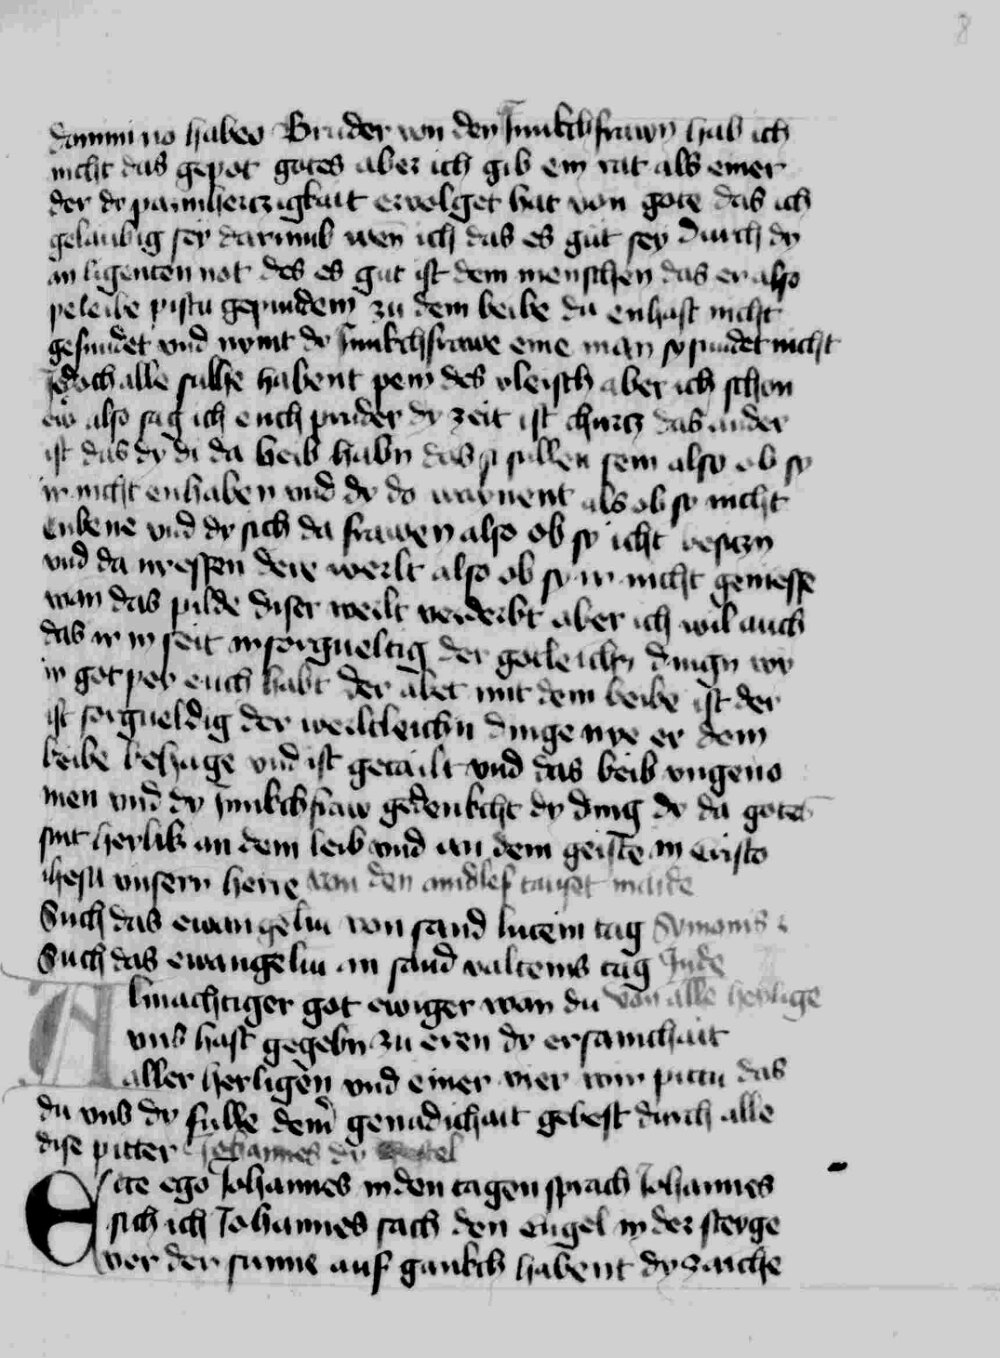 8
domini no habeo Bruder von den Junkchfrawn hab ich
nicht das gepot gotes aber ich gib ein rat als einer
der dy parmherczigkait ervolget hat von gote das ich
gelaubig sey darumb wen ich das es gut sey durch dy
an ligenten not des es gut ist dem menschen das er also
peleibe pistu gepunden zu dem beibe du enhast nicht
gesundet und nymt dy Junkchfrawe eine man sy sundet nicht
Jedoch alle sulhe habent pein des vleisch aber ich schon
ew also sag ich euch pruder dy zeit ist churcz das ander
ist das dy di da beib habn das si sullen sein also ob sy
ir nicht enhaben und dy do waynent als ob sy nicht
und dy sich da frawen also ob sy icht
und da nyessen der werlt also ob sy ir nicht geniesse
wan das pilde diser werlt verderbt aber ich wil auch
das ir in seit insorgueltig der
in got habt der aber mit dem beibe ist der
ist sorgueldig der werltleichn dinge wye er dem
beibe behage und ist getailt und das beib ungeno
men und dy junkchfraw gedenkcht dy ding dy da gotes
sint heylik an dem leib und an dem geiste in Cristo
ihesu unsern herre von den aindlef tauset maide
Such das ewangeliu von sand lucein tag Symonis
Such das ewangeliu an sand valteins tag Jude
Almachtiger got ewiger wan du von alle heylige
uns hast gegebn zu eren dy ersamchait
aller heyligen und einer vier wir pittu das
du uns dy fulle deine genadichait gebest durch alle
dise pitter Johannes dy
Ecce ego Johannes in den tagen sprach Johannes
sich ich Johannes sach den engel in der steyge
ver der sunne auf gankch habent dy zaiche